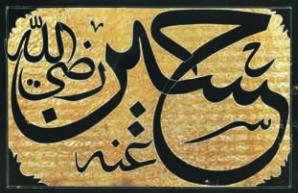 حسين رضي الله عنه